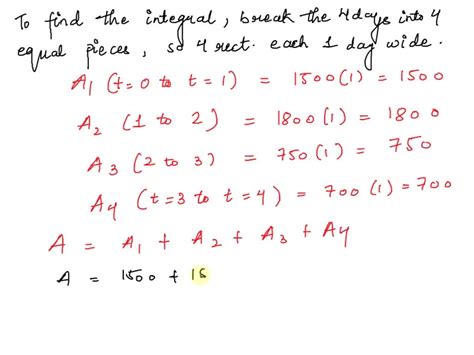 To find the integral, break the 4 days into 4
equal pieces, so 4 rect. each 1 day wide.
A1 (t=0 to t=1) = 1500(1) = 1500
A2 (1 to 2) = 1800(1) = 1800
A3 (2 to 3) = 750(1) = 750
A4 (t=3 to t=4) = 700(1) = 700
A = A1 + A2 + A3 + A4
A = 1500 + 18